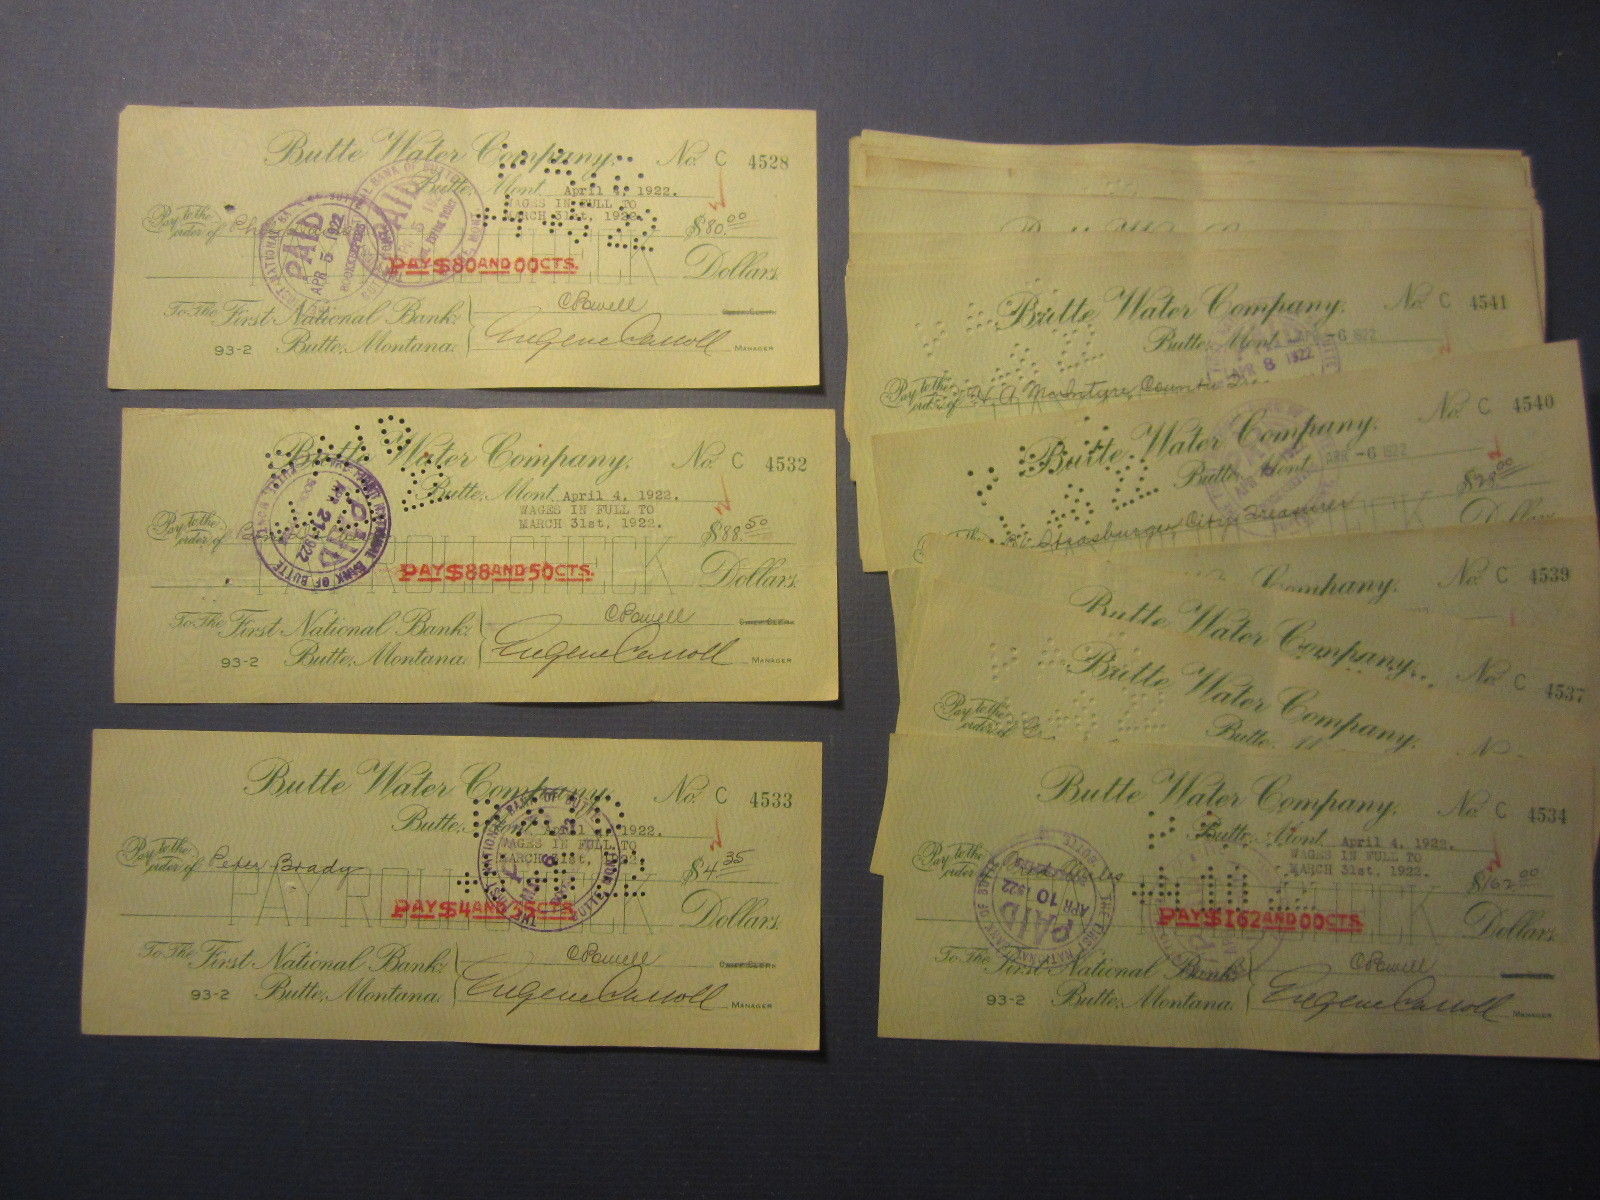 Butte Water Company. No. C 4528
Butte, Mont. April 4, 1922.
WAGES IN FULL TO
MARCH 31st, 1922.
Pay to the
order of $80.00
PAID APR 5 1922
PAY ROLL CHECK
PAY $80 AND 00 CTS. Dollars.
To The First National Bank, C Powell CHIEF CLERK
93-2 Butte, Montana. Eugene Carroll MANAGER
Butte Water Company. No. C 4532
Butte, Mont. April 4, 1922.
WAGES IN FULL TO
MARCH 31st, 1922.
Pay to the
order of $88.50
PAID APR 21 1922
PAY ROLL CHECK
PAY $88 AND 50 CTS. Dollars.
To The First National Bank, C Powell CHIEF CLERK
93-2 Butte, Montana. Eugene Carroll MANAGER
Butte Water Company. No. C 4533
Butte, Mont. April 4, 1922.
WAGES IN FULL TO
MARCH 31st, 1922.
Pay to the
order of Peter Brady $4.35
PAY ROLL CHECK
PAY $4 AND 35 CTS. Dollars.
To The First National Bank, C Powell CHIEF CLERK
93-2 Butte, Montana. Eugene Carroll MANAGER
Butte Water Company. No. C 4541
Butte, Mont. APR -6 1922
APR 8 1922
Pay to the
order of McIntyre, County
Butte Water Company. No. C 4540
Butte, Mont. APR -6 1922
$28.00
Strasburger City Treasurer
Dollars
Company. No. C 4539
Butte Water Company. No. C 4537
Butte Water Company. No.
Pay to the
order of
Butte
Butte Water Company. No. C 4534
Butte, Mont. April 4, 1922.
WAGES IN FULL TO
MARCH 31st, 1922.
Pay to the
order of $162.00
PAID APR 10 1922
PAY ROLL CHECK
PAY $162 AND 00 CTS. Dollars.
To The First National Bank, C Powell
93-2 Butte, Montana. Eugene Carroll MANAGER